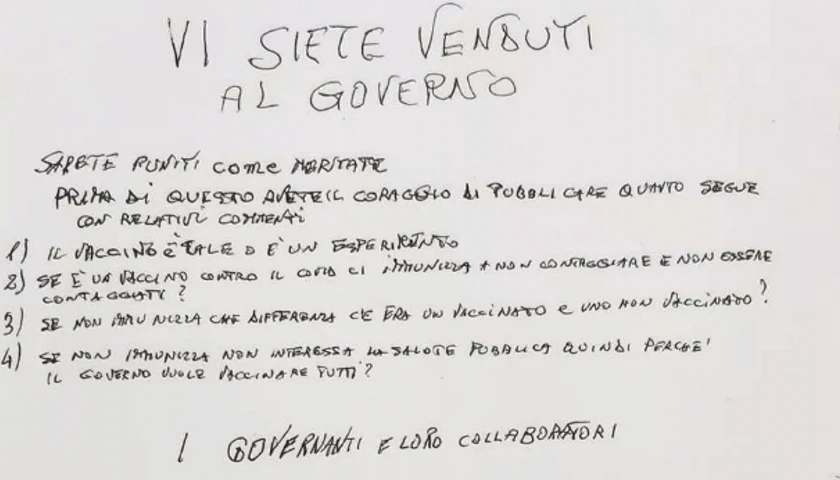 VI SIETE VENDUTI
AL GOVERNO
SARETE PUNITI COME MERITATE
PRIMA DI QUESTO AVETE IL CORAGGIO DI PUBBLICARE QUANTO SEGUE
CON RELATIVI COMMENTI
1) IL VACCINO È TALE O È UN ESPERIMENTO
2) SE È UN VACCINO CONTRO IL COVID CI IMMUNIZZA A NON CONTAGGIARE E NON ESSERE
CONTAGGIATI ?
3) SE NON IMMUNIZZA CHE DIFFERENZA C'E FRA UN VACCINATO E UNO NON VACCINATO ?
4) SE NON IMMUNIZZA NON INTERESSA LA SALUTE PUBBLICA QUINDI PERCHE'
IL GOVERNO VUOLE VACCINARE TUTTI ?
I GOVERNANTI E LORO COLLABORATORI